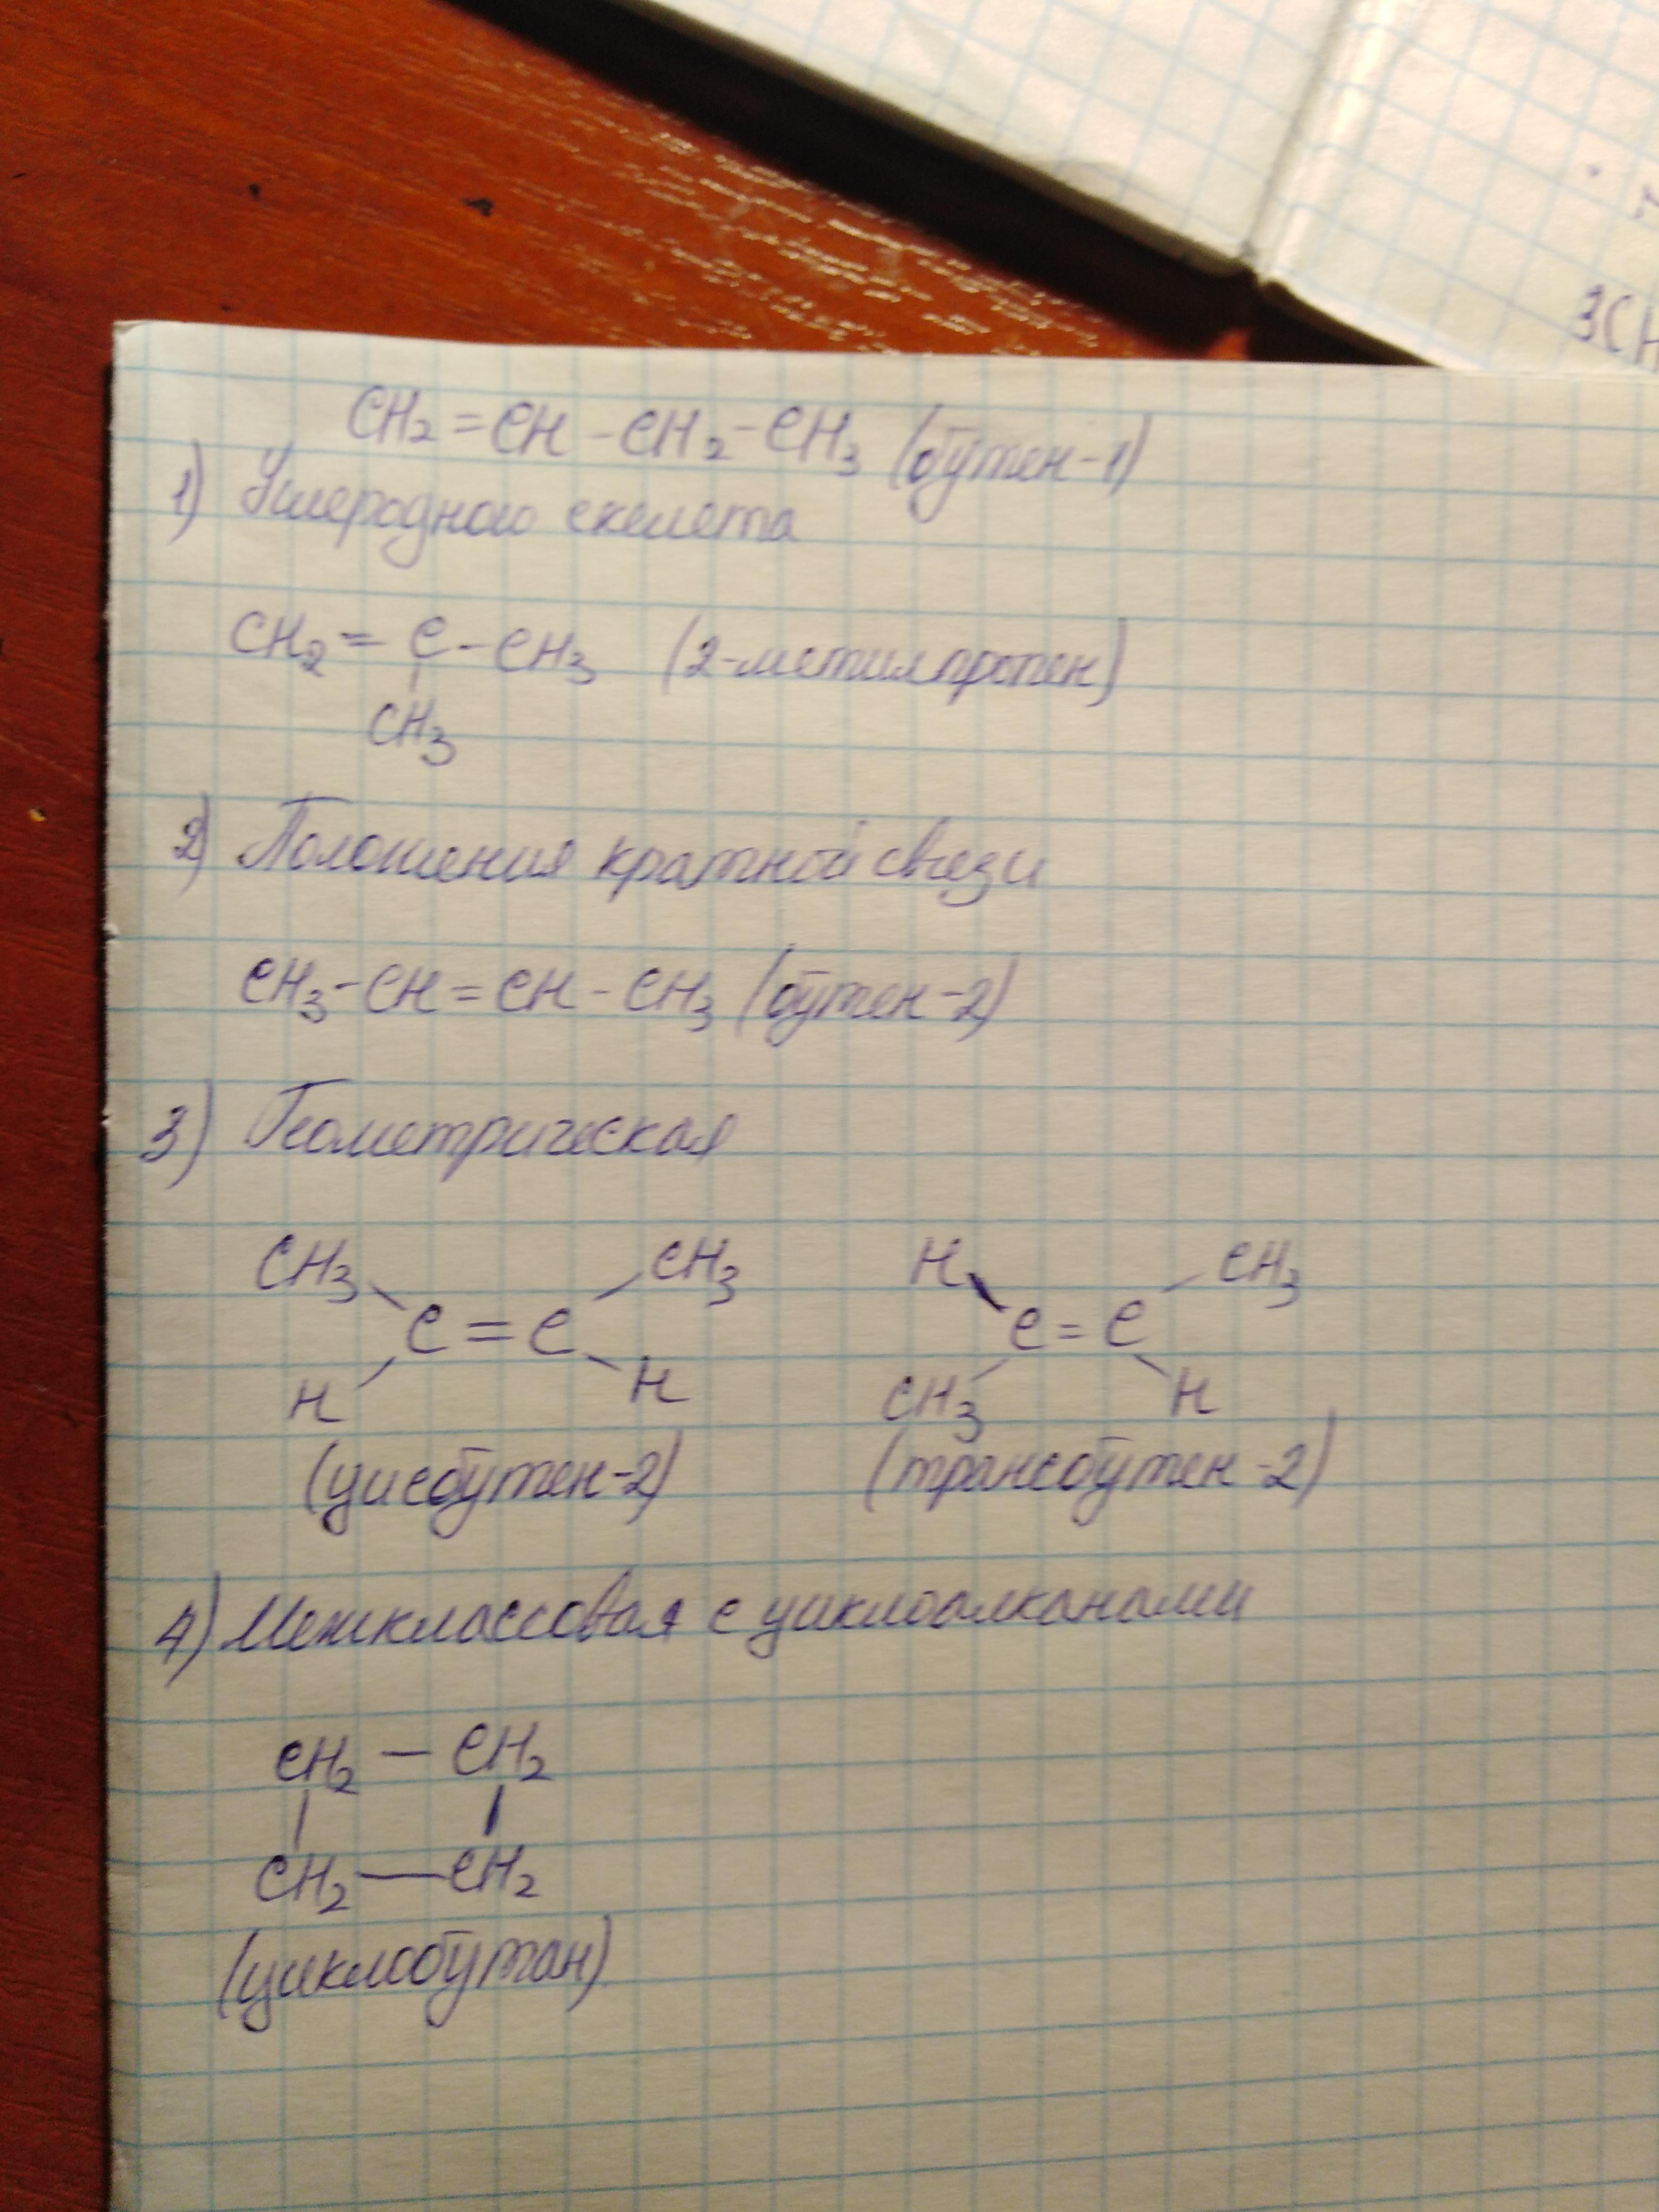 CH₂=CH-CH₂-CH₃ (бутен-1)
1) Углеродного скелета
CH₂=C-CH₃ (2-метилпропен)
|
CH₃
2) Положения кратной связи
CH₃-CH=CH-CH₃ (бутен-2)
3) Геометрическая
CH₃ CH₃ H CH₃
C=C C=C
H H CH₃ H
(цисбутен-2) (трансбутен-2)
4) Межклассовая с циклоалканами
CH₂—CH₂
| |
CH₂—CH₂
(циклобутан)
3CH